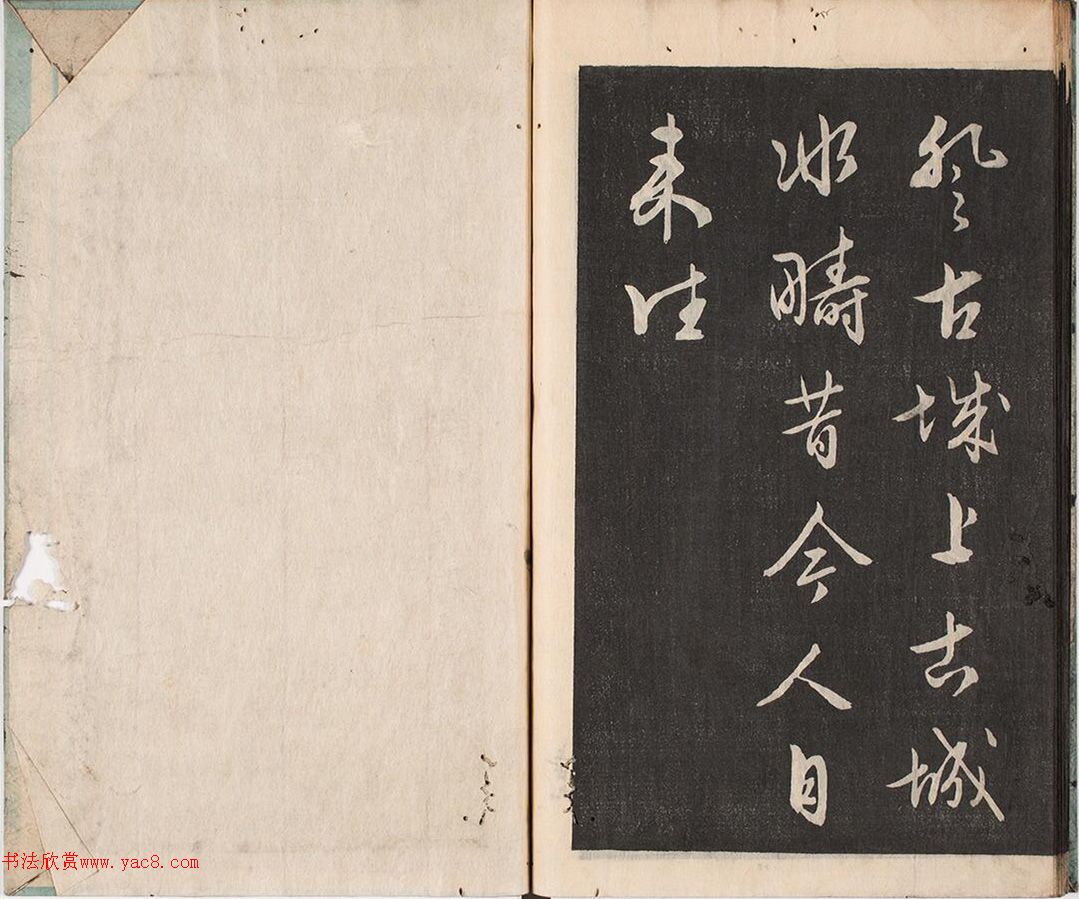 登古城上古城
非疇昔今人自
来往
书法欣赏www.yac8.com